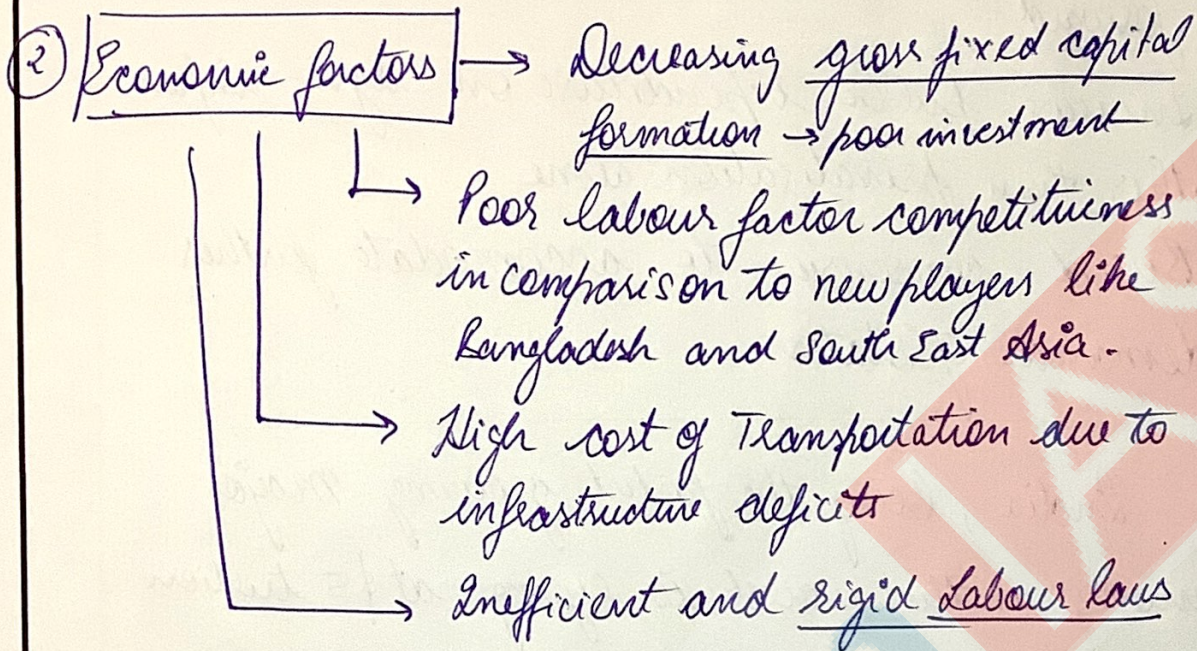 ② Economic factors → Decreasing gross fixed capital
formation → poor investment
→ Poor labour factor competitiveness
in comparison to new players like
Bangladesh and South East Asia.
→ High cost of Transportation due to
infrastructure deficits
→ Inefficient and rigid Labour laws